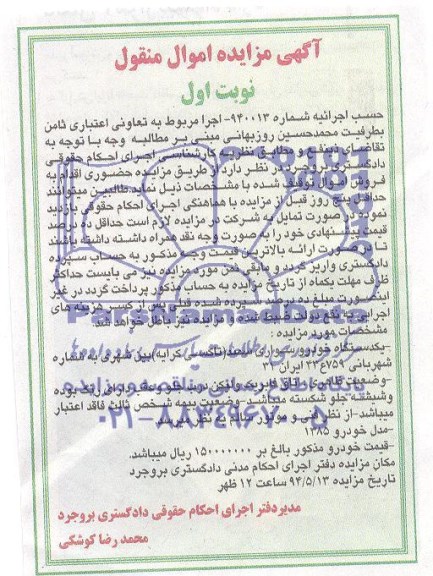 آگهی مزایده اموال منقول
نوبت اول
حسب اجرائیه شماره ۹۴۰۰۱۳- اجرا مربوط به تعاونی اعتباری ثامن
بطرفیت محمدحسین روزبهانی مبنی بر مطالبه وجه با توجه به
تقاضای ذینفع و مطابق نظریه کارشناسی اجرای احکام حقوقی
دادگستری در نظر دارد از طریق مزایده حضوری اقدام به
فروش اموال توقیف شده با مشخصات ذیل نماید طالبین میتوانند
حداقل پنج روز قبل از مزایده با هماهنگی اجرای احکام حقوقی بازدید
نموده در صورت تمایل به شرکت در مزایده لازم است حداقل ده درصد
قیمت پیشنهادی خود را به صورت وجه نقد همراه داشته باشند
تا در صورت ارائه بالاترین قیمت وجه مذکور به حساب سپرده
دادگستری واریز گردد و مابقی ثمن مورد مزایده نیز می بایست حداکثر
ظرف مهلت یکماه از تاریخ مزایده به حساب مذکور پرداخت گردد در غیر
اینصورت مبلغ ده درصد سپرده شده قبلی پس از کسر هزینه های
اجرایی به نفع دولت ضبط شده و مزایده نیز باطل خواهد شد.
مشخصات مورد مزایده :
-یکدستگاه خودرو سواری سمند (تاکسی کرایه) بین شهری به شماره
شهربانی ۷۵۹ع۴۳ ایران
-وضعیت ظاهری: اتاق فابریک ولیکن درب جلو و عقب دارای رنگ بوده
وشیشه جلو شکسته میباشد-وضعیت بیمه شخص ثالث فاقد اعتبار
میباشد-از نظر فنی و موتور سالم به نظر میرسد
-مدل خودرو ۱۳۸۵
-قیمت خودرو مذکور بالغ بر ۱۵۰۰۰۰۰۰۰ ریال میباشد.
مکان مزایده دفتر اجرای احکام مدنی دادگستری بروجرد
تاریخ مزایده ۹۴/۵/۱۳ ساعت ۱۲ ظهر
مدیردفتر اجرای احکام حقوقی دادگستری بروجرد
محمد رضا کوشکی
ParsNamadData
۰۲۱-۸۸۳۴۹۶۷۰-۵